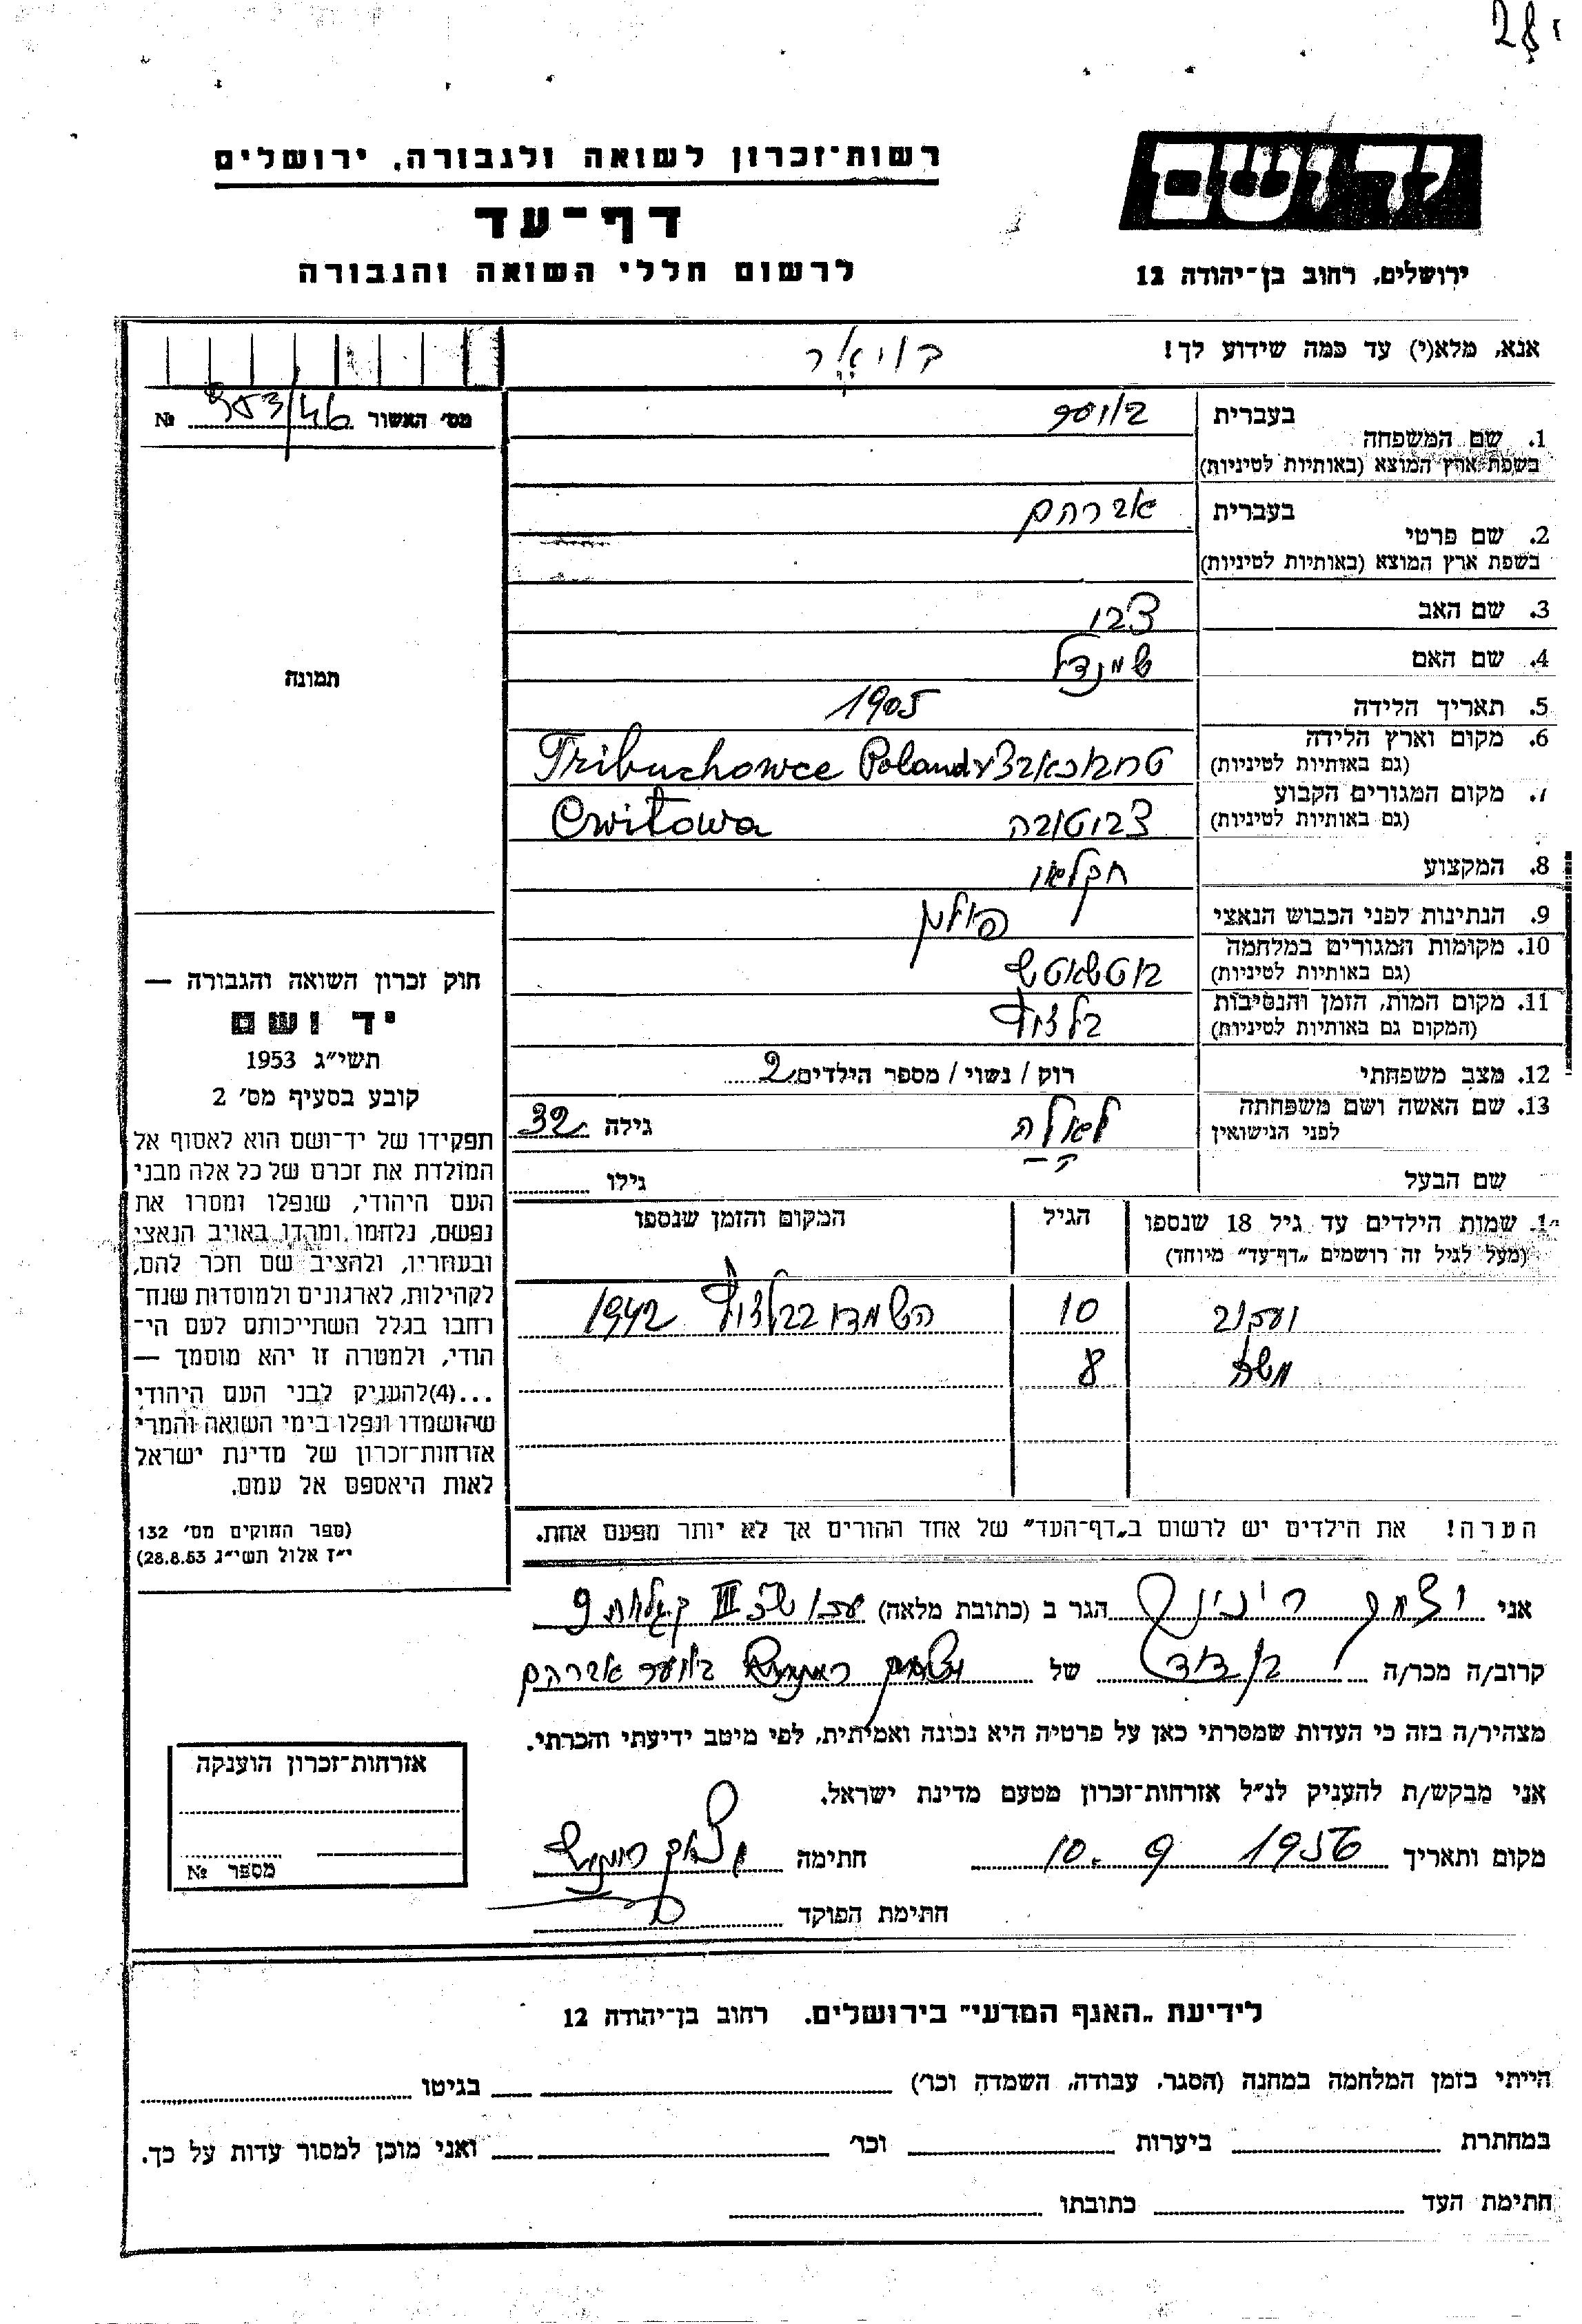 28
רשות־זכרון לשואה ולגבורה, ירושלים
יד ושם
דף־עד
לרשום חללי השואה והגבורה
ירושלים, רחוב בן־יהודה 12
אנא, מלא(י) עד כמה שידוע לך!
מס׳ האשור 353/46 №
1. שם המשפחה
בעברית
בשפת ארץ המוצא (באותיות לטיניות)
2. שם פרטי
בעברית אברהם
בשפת ארץ המוצא (באותיות לטיניות)
3. שם האב צבי
4. שם האם
5. תאריך הלידה 1905
6. מקום וארץ הלידה Tribuchowce Poland
(גם באותיות לטיניות)
7. מקום המגורים הקבוע צביטובה Cwitowa
(גם באותיות לטיניות)
8. המקצוע חקלאי
9. הנתינות לפני הכבוש הנאצי פולין
10. מקומות המגורים במלחמה בוטשאטש
(גם באותיות לטיניות)
11. מקום המות, הזמן והנסיבות בלזץ
(המקום גם באותיות לטיניות)
12. מצב משפחתי רוק / נשוי / מספר הילדים 2
13. שם האשה ושם משפחתה לאלה גילה 32
לפני הנישואין
שם הבעל גילו
14. שמות הילדים עד גיל 18 שנספו הגיל המקום והזמן שנספו
(מעל לגיל זה רושמים „דף־עד״ מיוחד)
יעקב 10 הושמדו בבלזץ 1942
משה 8
הערה! את הילדים יש לרשום ב„דף־העד״ של אחד ההורים אך לא יותר מפעם אחת.
תמונה
חוק זכרון השואה והגבורה —
יד ושם
תשי״ג 1953
קובע בסעיף מס׳ 2
תפקידו של יד־ושם הוא לאסוף אל
המולדת את זכרם של כל אלה מבני
העם היהודי, שנפלו ומסרו את
נפשם, נלחמו ומרדו באויב הנאצי
ובעוזריו, ולהציב שם וזכר להם,
לקהילות, לארגונים ולמוסדות שנח־
רבו בגלל השתייכותם לעם הי־
הודי, ולמטרה זו יהא מוסמך —
...(4)להעניק לבני העם היהודי
שהושמדו ונפלו בימי השואה והמרי
אזרחות־זכרון של מדינת ישראל
לאות היאספם אל עמם.
(ספר החוקים מס׳ 132
י״ז אלול תשי״ג 28.8.53)
אני יצחק הגר ב (כתובת מלאה)
קרוב/ה מכר/ה בן דוד של אברהם
מצהיר/ה בזה כי העדות שמסרתי כאן על פרטיה היא נכונה ואמיתית, לפי מיטב ידיעתי והכרתי.
אני מבקש/ת להעניק לנ״ל אזרחות־זכרון מטעם מדינת ישראל.
מקום ותאריך 10. 9 1956 חתימה יצחק
חתימת הפוקד
אזרחות־זכרון הוענקה
מספר №
לידיעת „האגף המדעי״ בירושלים. רחוב בן־יהודה 12
הייתי בזמן המלחמה במחנה (הסגר, עבודה, השמדה וכר׳) בגיטו
במחתרת ביערות וכר׳ ואני מוכן למסור עדות על כך.
חתימת העד כתובתו